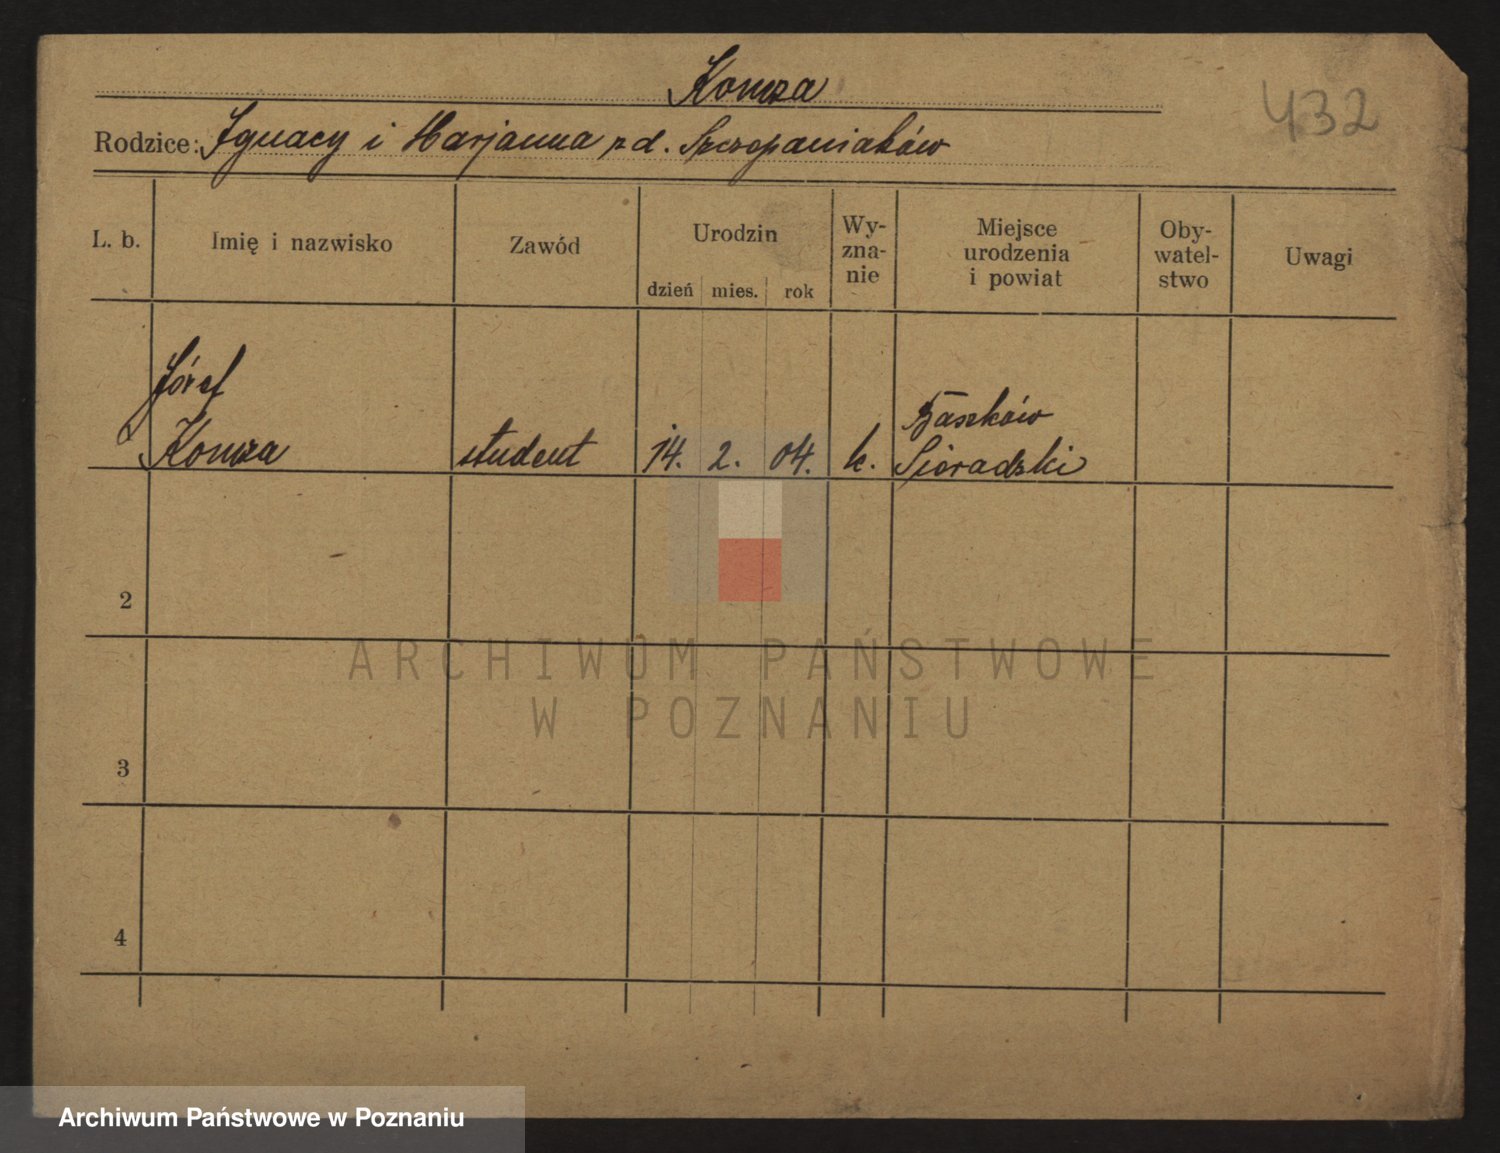 Komza
432
Rodzice: Ignacy i Marjanna z d. Szczepaniaków
L. b.
Imię i nazwisko
Zawód
Urodzin
dzień mies. rok
Wy-
zna-
nie
Miejsce
urodzenia
i powiat
Oby-
watel-
stwo
Uwagi
Józef
Komza
student
14. 2. 04.
k.
Baszków
Sieradzki
2
3
4
ARCHIWUM PAŃSTWOWE
W POZNANIU
Archiwum Państwowe w Poznaniu